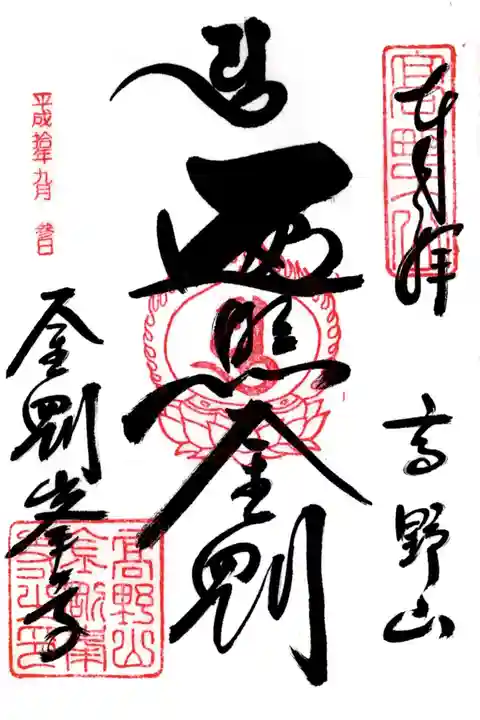 奉拝
高野山
遍照金剛
平成拾年九月 參日
金剛峯寺
高野山
金剛峯
寺之印